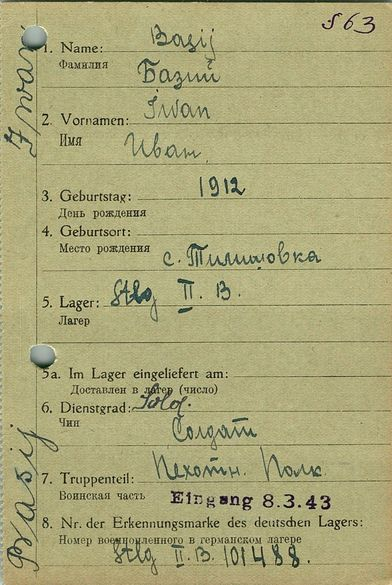 563
1. Name: Basij
Фамилия Базий
2. Vornamen: Iwan
Имя Иван.
3. Geburtstag: 1912
День рождения
4. Geburtsort:
Место рождения
с. Тимиловка
5. Lager: Stlg II. B.
Лагер
5a. Im Lager eingeliefert am:
Доставлен в лагер (число)
6. Dienstgrad: Sold.
Чин Солдат
7. Truppenteil: Пехотн. Полк
Воинская часть Eingang 8.3.43
8. Nr. der Erkennungsmarke des deutschen Lagers:
Номер военнопленного в германском лагере
Stlg II. B. 101488.
Iwan